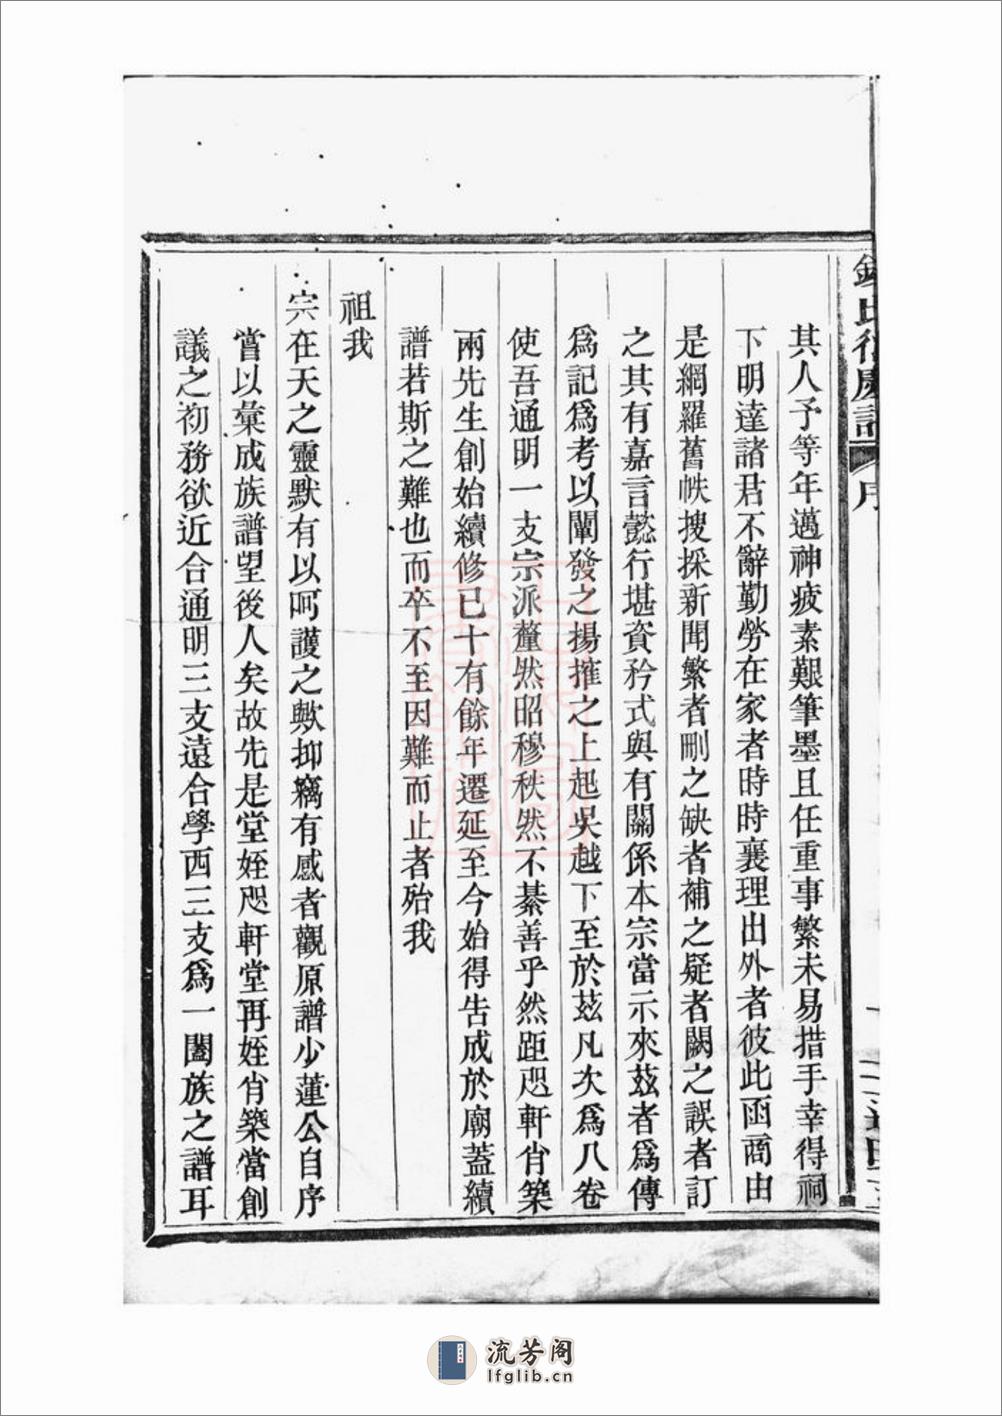 其人予等年邁神疲素艱筆墨且任重事繁未易措手幸得祠
下明達諸君不辭勤勞在家者時時襄理出外者彼此函商由
是網羅舊帙搜採新聞繁者刪之缺者補之疑者闕之誤者訂
之其有嘉言懿行堪資矜式與有關係本宗當示來茲者為傳
為記為考以闡發之揚搉之上起吳越下至於茲凡次為八卷
使吾通明一支宗派釐然昭穆秩然不綦善乎然距恖軒肖築
兩先生創始續修已十有餘年遷延至今始得告成於廟蓋續
譜若斯之難也而卒不至因難而止者殆我
祖我
宗在天之靈默有以呵護之歟抑竊有感者觀原譜少蓮公自序
嘗以彙成族譜望後人矣故先是堂姪恖軒堂再姪肖築當創
議之初務欲近合通明三支遠合學西三支為一闔族之譜耳
流芳阁
lfglib.cn